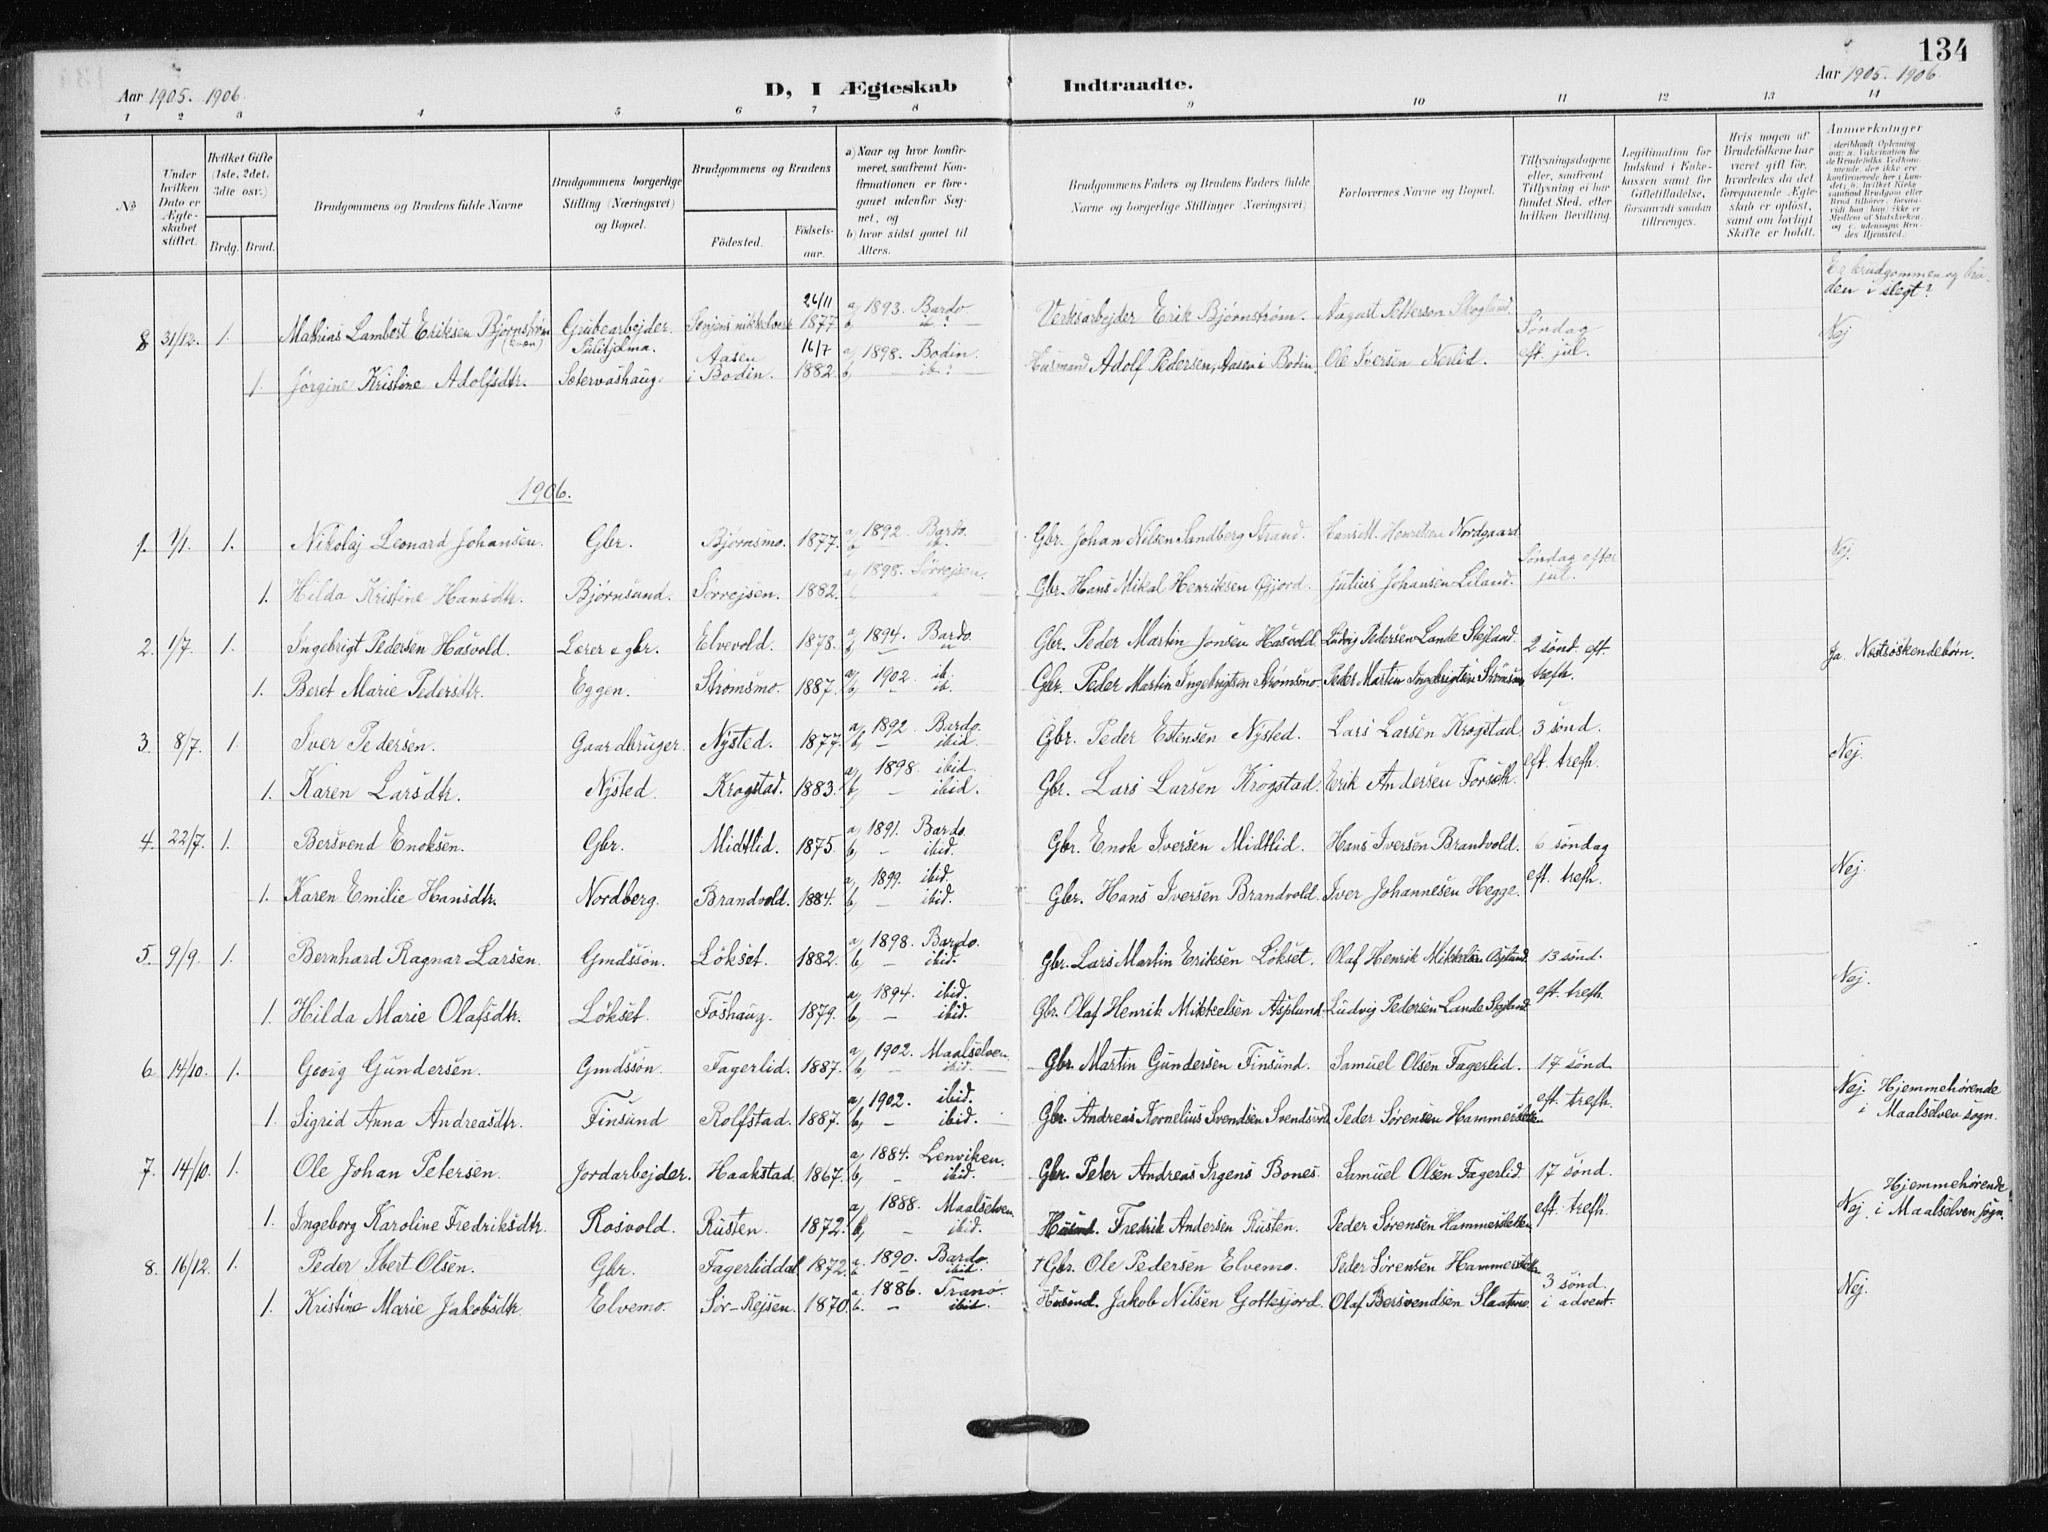 134
Aar 1905. 1906.
D, I Ægteskab Indtraadte.
Aar 1905. 1906
1 2 3 4 5 6 7 8 9 10 11 12 13 14
No
Under hvilken Dato er Ægteskabet stiftet.
Hvilket Gifte (1ste, 2det, 3die osv.)
Brdg. Brud.
Brudgommens og Brudens fulde Navne
Brudgommens borgerlige Stilling (Næringsvei) og Bopæl.
Brudgommens og Brudens
Fødested. Fødselsaar.
a) Naar og hvor konfirmeret, saafremt Konfirmationen er foregaaet udenfor Sognet, og
b) hvor sidst gaaet til Alters.
Brudgommens Faders og Brudens Faders fulde Navne og borgerlige Stillinger (Næringsvei)
Forlovernes Navne og Bopæl.
Tillysningsdagene eller, saafremt Tillysning ei har fundet Sted, efter hvilken Bevilling.
Legitimation for Indskud i Enkekassen samt for Giftetilladelse, forsaavidt saadan tiltrænges.
Hvis nogen af Brudefolkene har været gift før, hvorledes da det foregaaende Ægteskab er opløst, samt om lovligt Skifte er holdt.
Anmerkninger
deriblandt Oplysning om: a. Vakcination for de Brudefolks Vedkommende, der ikke ere konfirmerede her i Landet; b. hvilket Kirkesamfund Brudgom eller Brud tilhører, forsaavidt han, hun ikke er Medlem af Statskirken, og c. udensogns Brudes Hjemsted.
Er brudgommen og bruden i slegt?
8 31/12. 1. Mathias Lambert Eriksen Bjørnstrøm Grubearbejder. Senjens nikkelverk 26/11 1877. a, 1893. Bardo b, ib.? Verksarbejder Erik Bjørnstrøm. August Petterson Skoglund. Søndag Nej
Sulitjelma.
1. Jørgine Kristine Adolfsdtr. Sætervashaug. Aasen i Bodin. 16/7 1882. a, 1898. Bodin. b, – ib.? Husmand Adolf Pedersen, Aasen i Bodin, Ole Iversen Neslid. eft. jul.
1906.
1. 1/1. 1. Nikolaj Leonard Johansen. Gbr. Bjørnsmo. 1877. a, 1892. Bardo. b, ib. Gbr. Johan Nilsen Sandberg Strand. Hans M. Henriksen Nordgaard Søndag efter Nej.
1. Hilda Kristine Hansdtr. Bjørnsund. Sørrejsen. 1882. a, 1898. Sørrejsen. Gbr. Hans Mikal Henriksen Gjjord. Julius Johansen Liland. jul.
2. 1/7. 1. Ingebrigt Pedersen Hasvold. Lærer o gbr. Elvevold. 1878. a, 1894. Bardo b, — " Gbr. Peder Martin Jonsen Hasvold. Ludvig Pedersen Lande Stejland. 2 sønd. eft. Ja. Næstsøskendebørn.
1. Beret Marie Pedersdtr. Eggen. Strømsmo. 1887. a, 1902. ib. b, – ib. Gbr. Peder Martin Ingebrigtsen Strømsmo. Peder Martin Ingebrigtsen Strømsmo trefh.
3. 8/7. 1. Iver Pedersen. Gaardbruger. Nysted. 1877. a, 1892. Bardo. b, – ibid. Gbr. Peder Estensen Nysted. Lars Larsen Krogstad 3 sønd. Nej.
1. Karen Larsdtr. Nysted. Krogstad. 1883. a, 1898. ibid. b, – ibid. Gbr. Lars Larsen Krogstad. Erik Andersen Forseth. eft. trefh.
4. 22/7. 1. Bersvend Enoksen. Gbr. Midtlid. 1875. a, 1891. Bardo. b, – ibid. Gbr. Enok Iversen Midtlid. Hans Iversen Brandvold. 6 søndag Nej.
1. Karen Emilie Hansdtr. Nordberg. Brandvold. 1884. a, 1899. ibid. b, – ibid. Gbr. Hans Iversen Brandvold. Iver Johannesen Hegge. eft. trefh.
5. 9/9. 1. Bernhard Ragnar Larsen. Gmdssøn. Løkset. 1882. a, 1898. Bardo. b, – ibid. Gbr. Lars Martin Eriksen Løkset. Olaf Henrik Mikkelsen Asplund 13 sønd. Nej.
1. Hilda Marie Olafsdtr. Løkset. Foshaug. 1879. a, 1894. ibid. b, – ibid. Gbr. Olaf Henrik Mikkelsen Asplund. Ludvig Pedersen Lande Stejland eft. trefh.
6. 14/10. 1. Georg Gundersen. Gmdssøn. Fagerlid. 1887. a, 1902. Maalselven. b, – ibid. Gbr. Martin Gundersen Finsund. Samuel Olsen Fagerlid. 17 sønd. Nej. Hjemmehørende
1. Sigrid Anna Andreasdtr. Finsund Rolfstad. 1887. a, 1902. ibid. b, – ibid. Gbr. Andreas Kornelius Svendsen Svendsvold. Peder Sørensen Hammersletten eft. trefh. i Maalselven sogn.
7. 14/10. 1. Ole Johan Petersen. Jordarbejder. Haakstad. 1867. a, 1884. Lenviken. b, – ibid. Gbr. Peter Andreas Irgens Bones. Samuel Olsen Fagerlid. 17 sønd. Hjemmehørende
1. Ingeborg Karoline Fredriksdtr. Roivold. Rusten. 1872. a, 1888. Maalselven. b, – ibid. Husmd. Fredrik Andersen Rusten. Peder Sørensen Hammersletten eft. trefh. Nej. i Maalselven sogn.
8. 16/12. 1. Peder Ibert Olsen. Gbr. Fagerliddal 1872. a. 1890. Bardo. b. – ibid. † Gbr. Ole Pedersen Elvemo. Peder Sørensen Hammersletten 3 sønd. Nej.
1. Kristine Marie Jakobsdtr. Elvemo. Sør-Rejsen. 1870. a. 1886. Tranø. b. – ibid. Husmd. Jakob Nilsen Gottesjord. Olaf Bersvendsen Slaatmo. i advent.